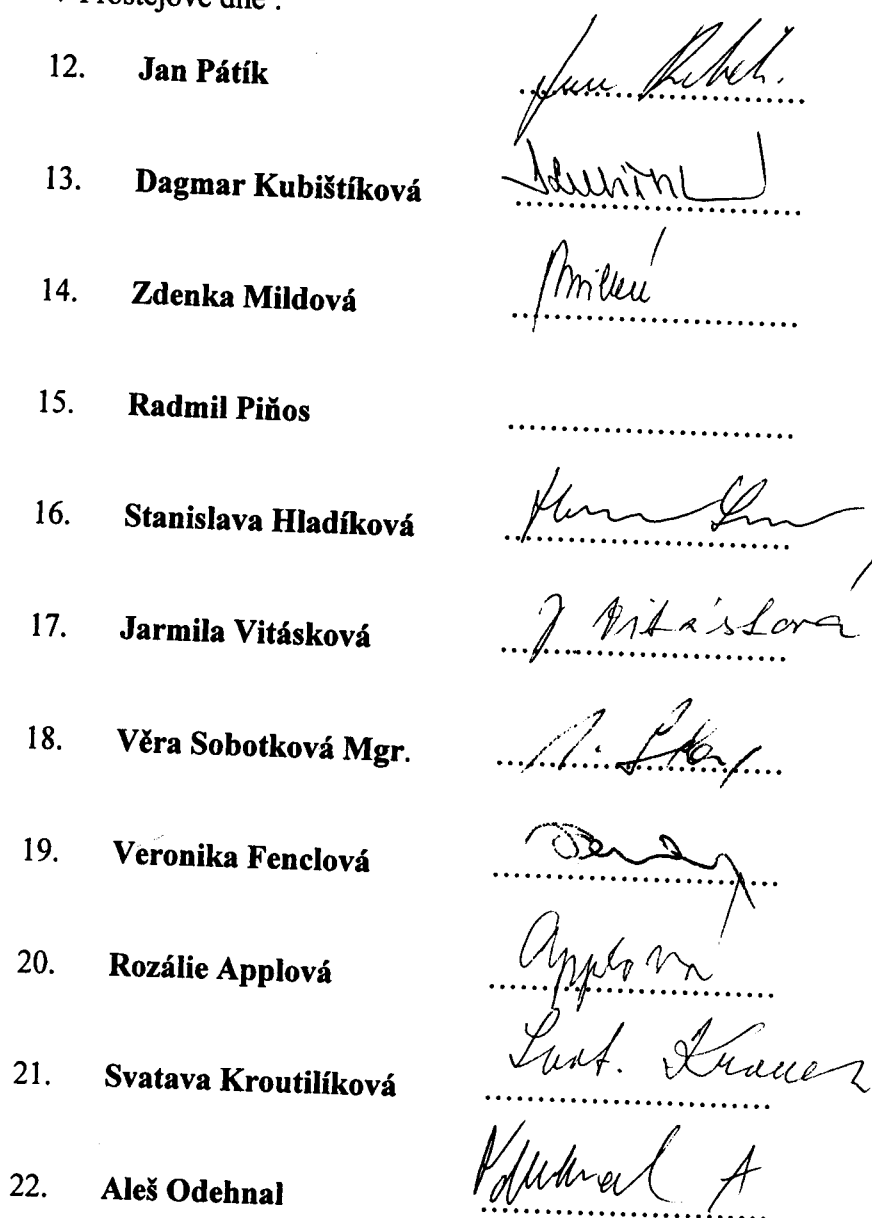 Prostějově dne :
12. Jan Pátík
13. Dagmar Kubištíková
14. Zdenka Mildová
15. Radmil Piňos
16. Stanislava Hladíková
17. Jarmila Vitásková J Vitásková
18. Věra Sobotková Mgr.
19. Veronika Fenclová
20. Rozálie Applová Applová
21. Svatava Kroutilíková Svat.
22. Aleš Odehnal Odehnal A